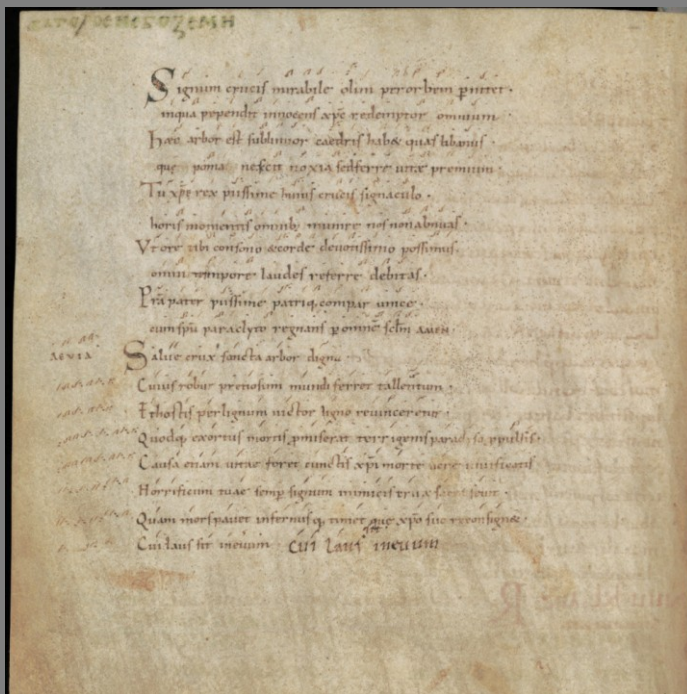 Signum crucis mirabile olim per orbem p̄nitet·
inqua pependit innocens xp̄c redemptor omnium
Haec arbor est sublimior caedris hab& quas libanus·
que poma nescit noxia sed ferre uitae premium·
Tu xp̄e rex piissime huius crucis signaculo·
horis momentis omnib; munire nos non abnuas·
Vt ore tibi consono & corde deuotissimo possimus·
omni tempore laudes referre debitas·
Pr̄a pater piissime patriq; compar unice·
cum sp̄u paraclyto regnans p omne sc̄lm AMEN·
AEVIA Salue crux sancta arbor digna·
Cuius robur pretiosum mundi ferret tallentum·
Et hostis per lignum uictor ligno reuinceretur
Quodq; exortus mortis terrigenis paradiso
Causa etiam uitae foret cunctis xp̄i morte uiuificatis
Horrificum tuae semp signum inimicis
Quam mors pauet infernus q; timet que xp̄c suo reconsignat·
Cui laus sit ineuum cui laus ineuum